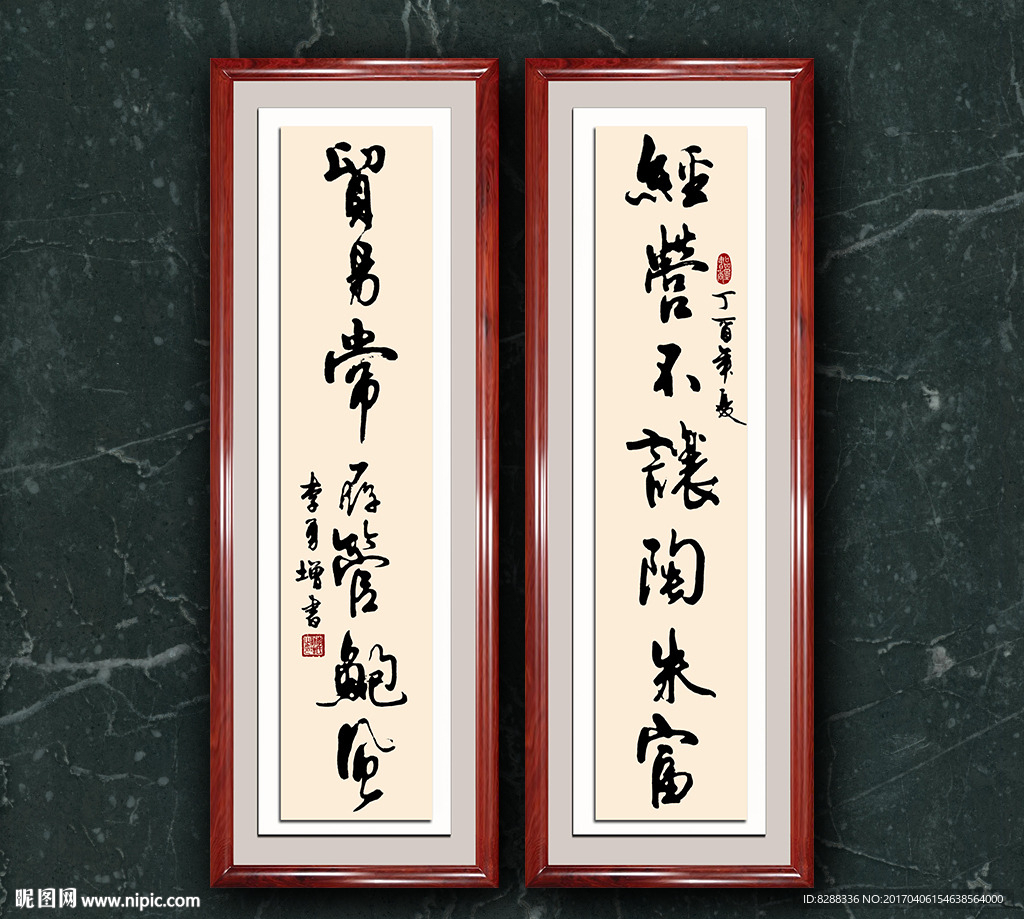 經營不讓陶朱富
丁酉年夏
貿易常存管鮑風
李勇增書
昵图网 www.nipic.com
ID:8288336 NO:20170406154638564000